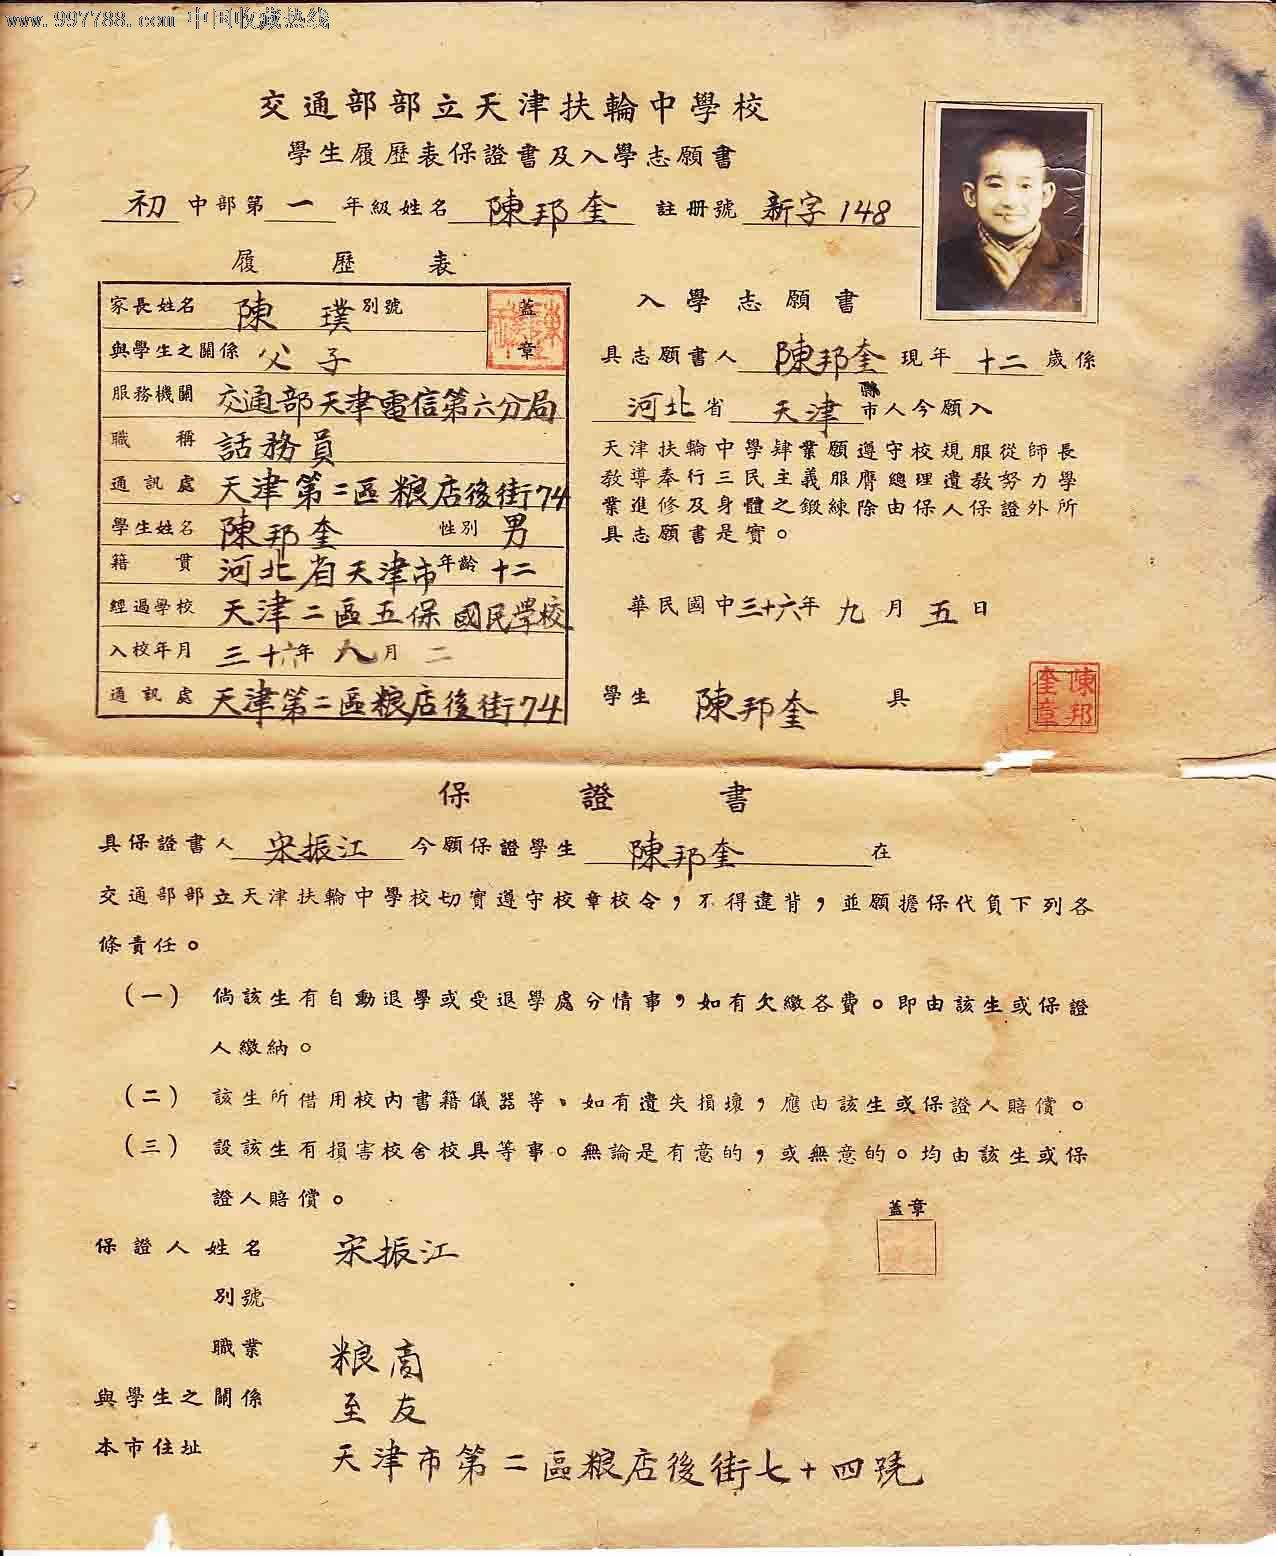 www.997788.com 中国收藏热线
交通部部立天津扶輪中學校
學生履歷表保證書及入學志願書
初中部第一年級姓名陳邦奎 註册號 新字148
履歷表
家長姓名 陳璞 別號
蓋章
與學生之關係 父子
服務機關 交通部天津電信第六分局
職稱 話務員
通訊處 天津第二區粮店後街74
學生姓名 陳邦奎 性別 男
籍貫 河北省天津市 年齡 十二
經過學校 天津二區五保國民學校
入校年月 三十六年九月二
通訊處 天津第二區粮店後街74
入學志願書
具志願書人 陳邦奎 現年 十二 歲係
河北省 天津 縣市人今願入
天津扶輪中學肄業願遵守校規服從師長
教導奉行三民主義服膺總理遺教努力學
業進修及身體之鍛練除由保人保證外所
具志願書是實。
華民國中三十六年九月五日
學生 陳邦奎 具
陳邦奎章
保證書
具保證書人 宋振江 今願保證學生 陳邦奎 在
交通部部立天津扶輪中學校切實遵守校章校令，不得違背，並願擔保代負下列各
條責任。
(一) 倘該生有自動退學或受退學處分情事，如有欠繳各費。即由該生或保證
人繳納。
(二) 該生所借用校內書籍儀器等、如有遺失損壞，應由該生或保證人賠償。
(三) 設該生有損害校舍校具等事。無論是有意的，或無意的。均由該生或保
證人賠償。
蓋章
保證人姓名 宋振江
別號
職業 粮商
與學生之關係 至友
本市住址 天津市第二區粮店後街七十四號